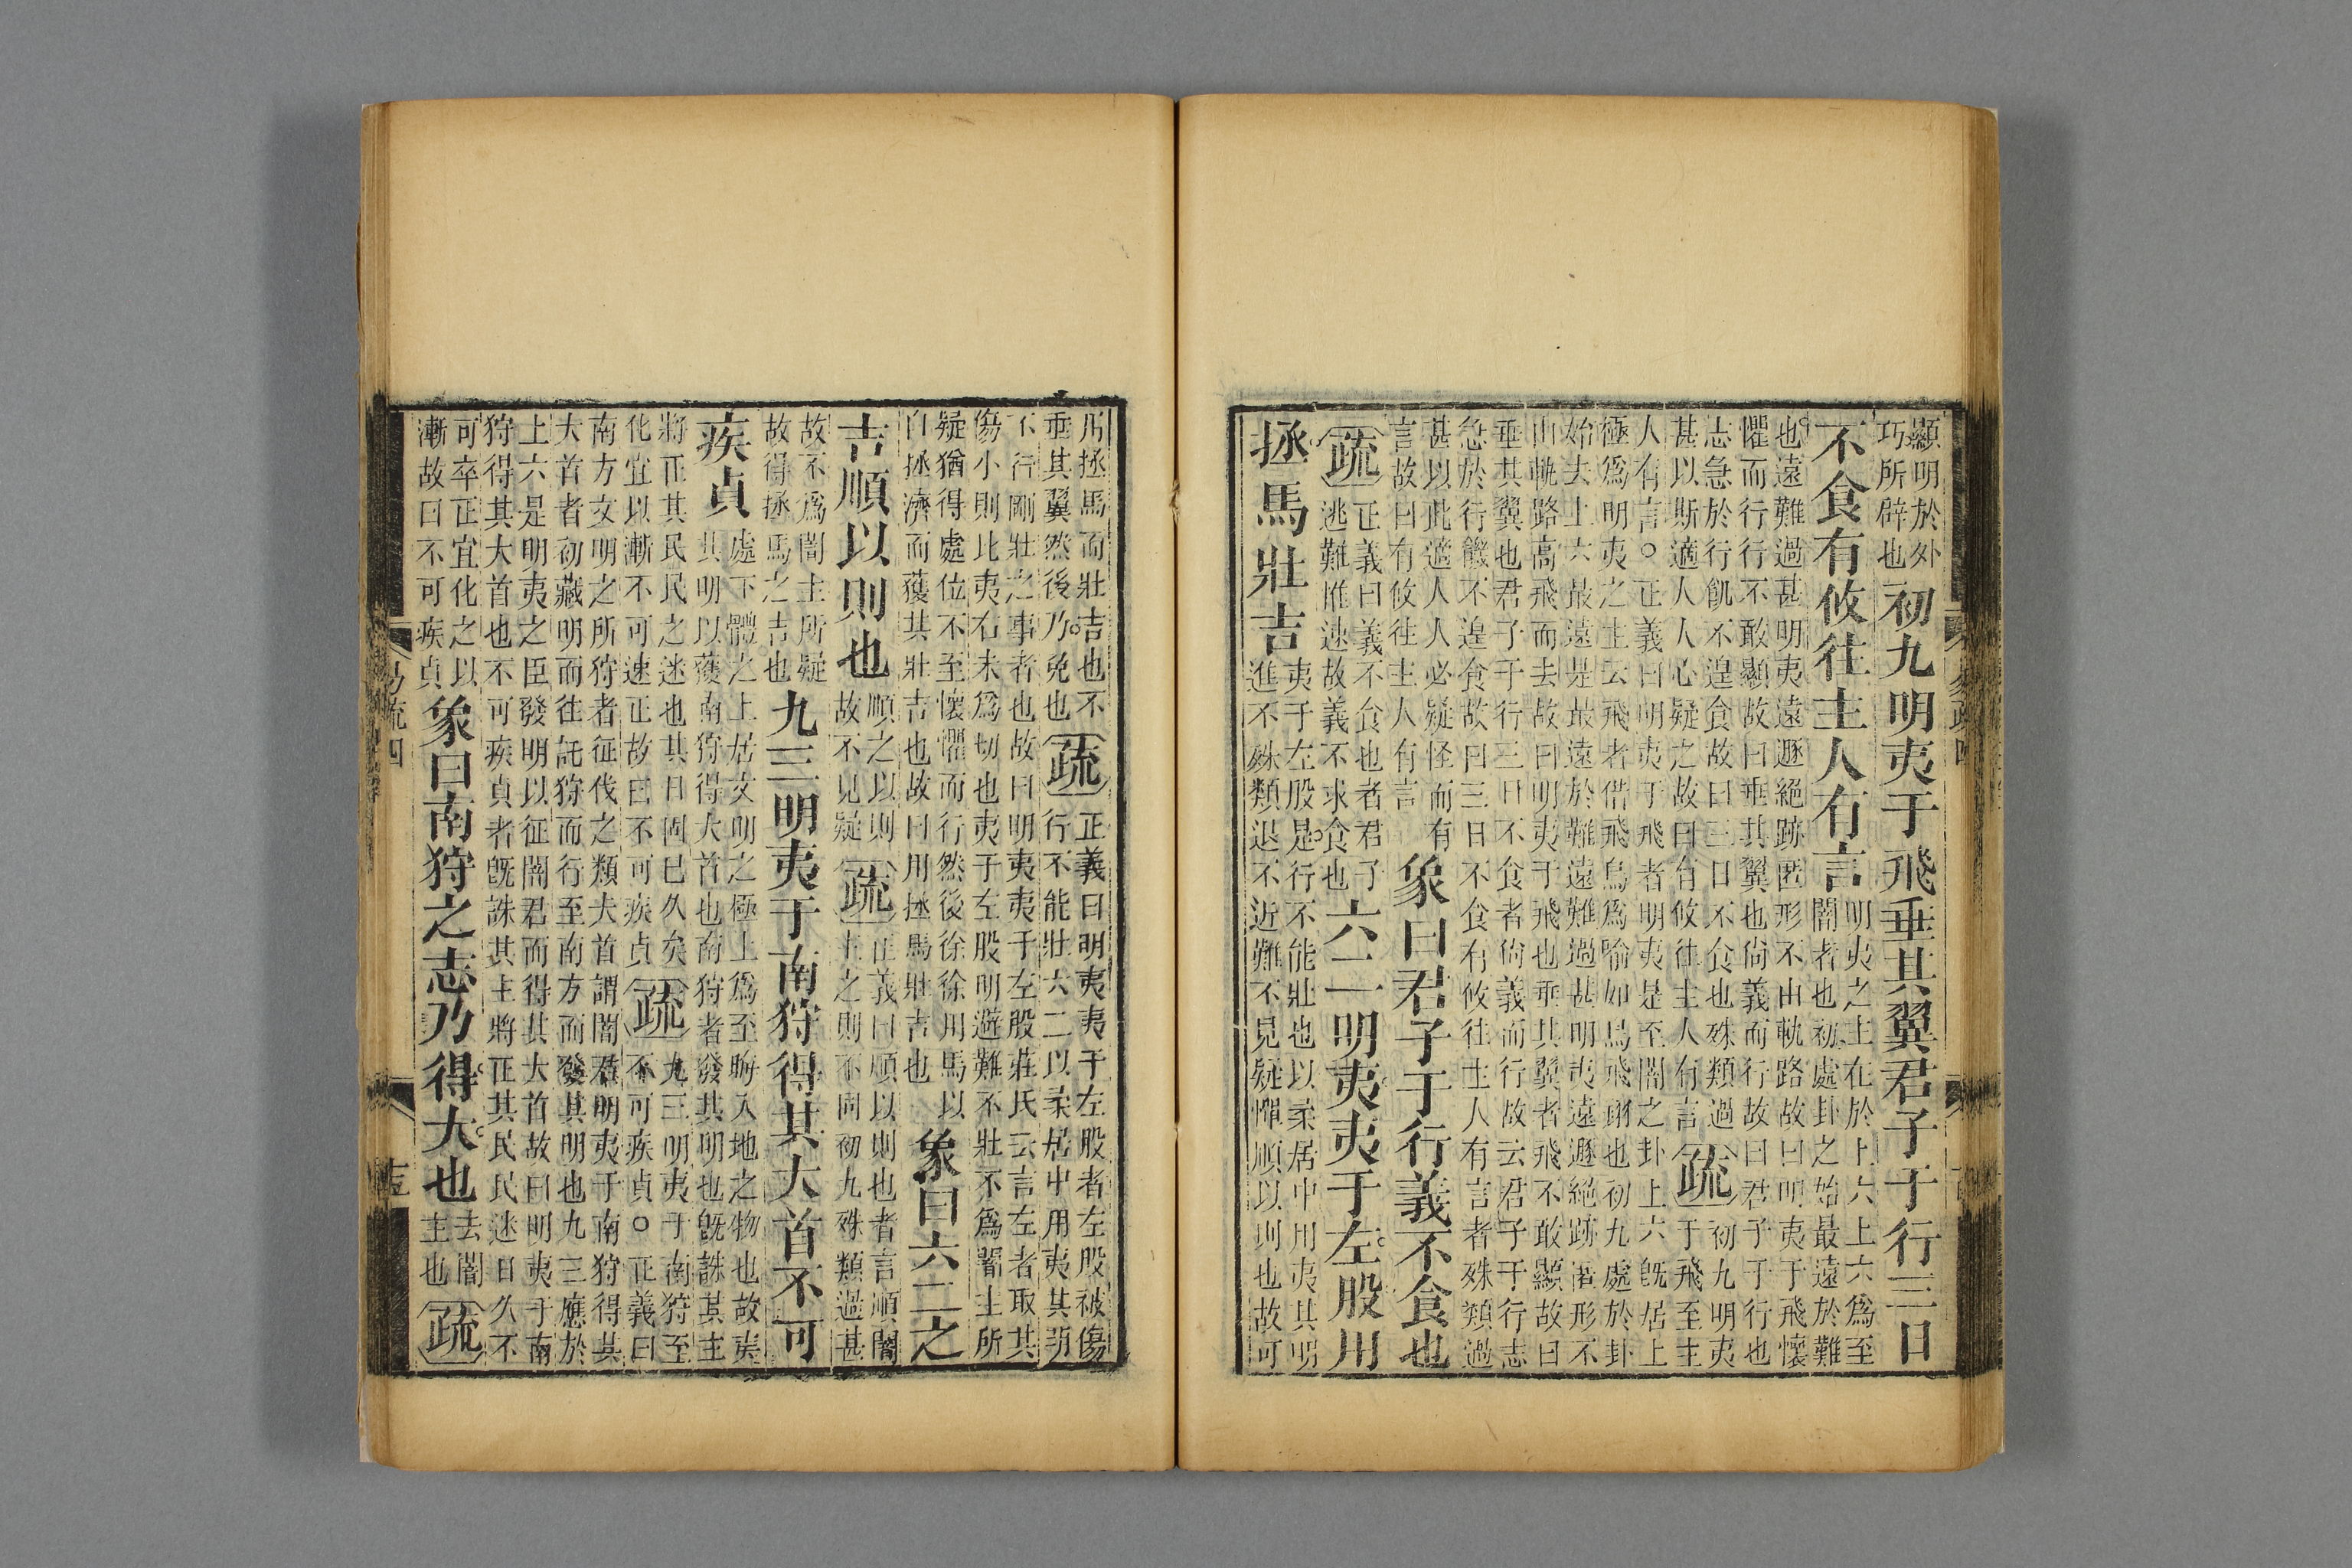 顯明於外巧所辟也初九明夷于飛垂其翼君子于行三日
不食有攸往主人有言明夷之主在於上六上六爲至闇者也初處卦之始最遠於難
也遠難過甚明夷遠遯絕跡匿形不由軌路故曰明夷于飛懷
懼而行行不敢顯故曰垂其翼也尚義而行故曰君子于行也
志急於行飢不遑食故曰三日不食也殊類過
甚以斯適人人心疑之故曰有攸往主人有言疏初九明夷于飛至主
人有言○正義曰明夷于飛者明夷是至闇之卦上六旣居上
極爲明夷之主云飛者借飛鳥爲喻如鳥飛翔也初九處於卦
始去上六最遠是最遠於難遠難過甚明夷遠遯絕跡匿形不
由軌路高飛而去故曰明夷于飛也垂其翼者飛不敢顯故曰
垂其翼也君子于行三日不食者尚義而行故云君子于行志
急於行饑不遑食故曰三日不食有攸往主人有言者殊類過
甚以此適人人必疑怪而有言故曰有攸往主人有言象曰君子于行義不食也
疏正義曰義不食也者君子逃難惟速故義不求食也六二明夷夷于左股用
拯馬壯吉夷于左股是行不能壯也以柔居中用夷其明進不殊類退不近難不見疑憚順以則也故可
用拯馬而壯吉也不垂其翼然後乃免也疏正義曰明夷夷于左股者左股被傷行不能壯六二以柔居中用夷其明
不行剛壯之事者也故曰明夷夷于左股莊氏云言左者取其
傷小則比夷右未爲切也夷于左股明避難不壯不爲闇主所
疑猶得處位不至懷懼而行然後徐徐用馬以自拯濟而獲其壯吉也故曰用拯馬壯吉也象曰六二之
吉順以則也順之以則故不見疑疏正義曰順以則也者言順闇主之則不同初九殊類過甚
故不爲闇主所疑故得拯馬之吉也九三明夷于南狩得其大首不可
疾貞處下體之上居文明之極上爲至晦入地之物也故夷其明以獲南狩得大首也南狩者發其明也旣誅其主
將正其民民之迷也其日固已久矣化宜以漸不可速正故曰不可疾貞疏九三明夷于南狩至不可疾貞○正義曰
南方文明之所狩者征伐之類大首謂闇君明夷于南狩得其
大首者初藏明而往託狩而行至南方而發其明也九三應於
上六是明夷之臣發明以征闇君而得其大首故曰明夷于南
狩得其大首也不可疾貞者旣誅其主將正其民民迷日久不
可卒正宜化之以漸故曰不可疾貞象曰南狩之志乃得大也去闇主也疏
易疏四